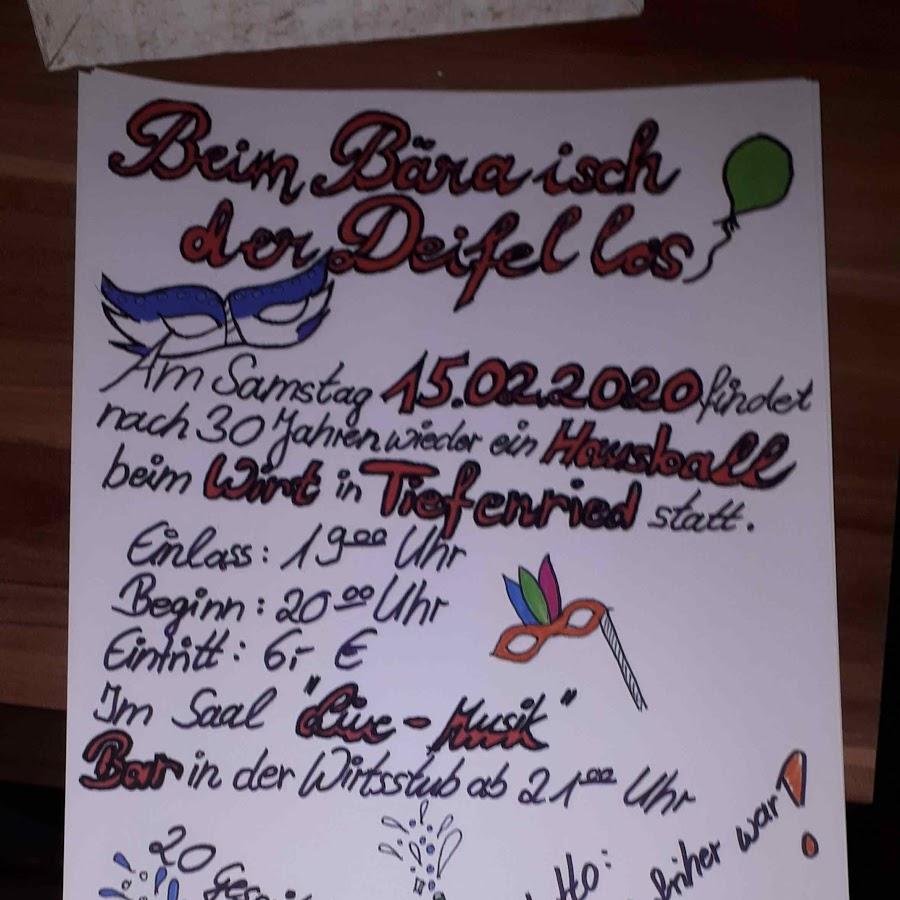 Beim Bära isch
der Deifel los
Am Samstag 15.02.2020 findet
nach 30 Jahren wieder ein Hausball
beim Wirt in Tiefenried statt.
Einlass: 19⁰⁰ Uhr
Beginn: 20⁰⁰ Uhr
Eintritt: 6,- €
Im Saal "Live-Musik"
Bar in der Wirtsstub ab 21⁰⁰ Uhr
20
war!